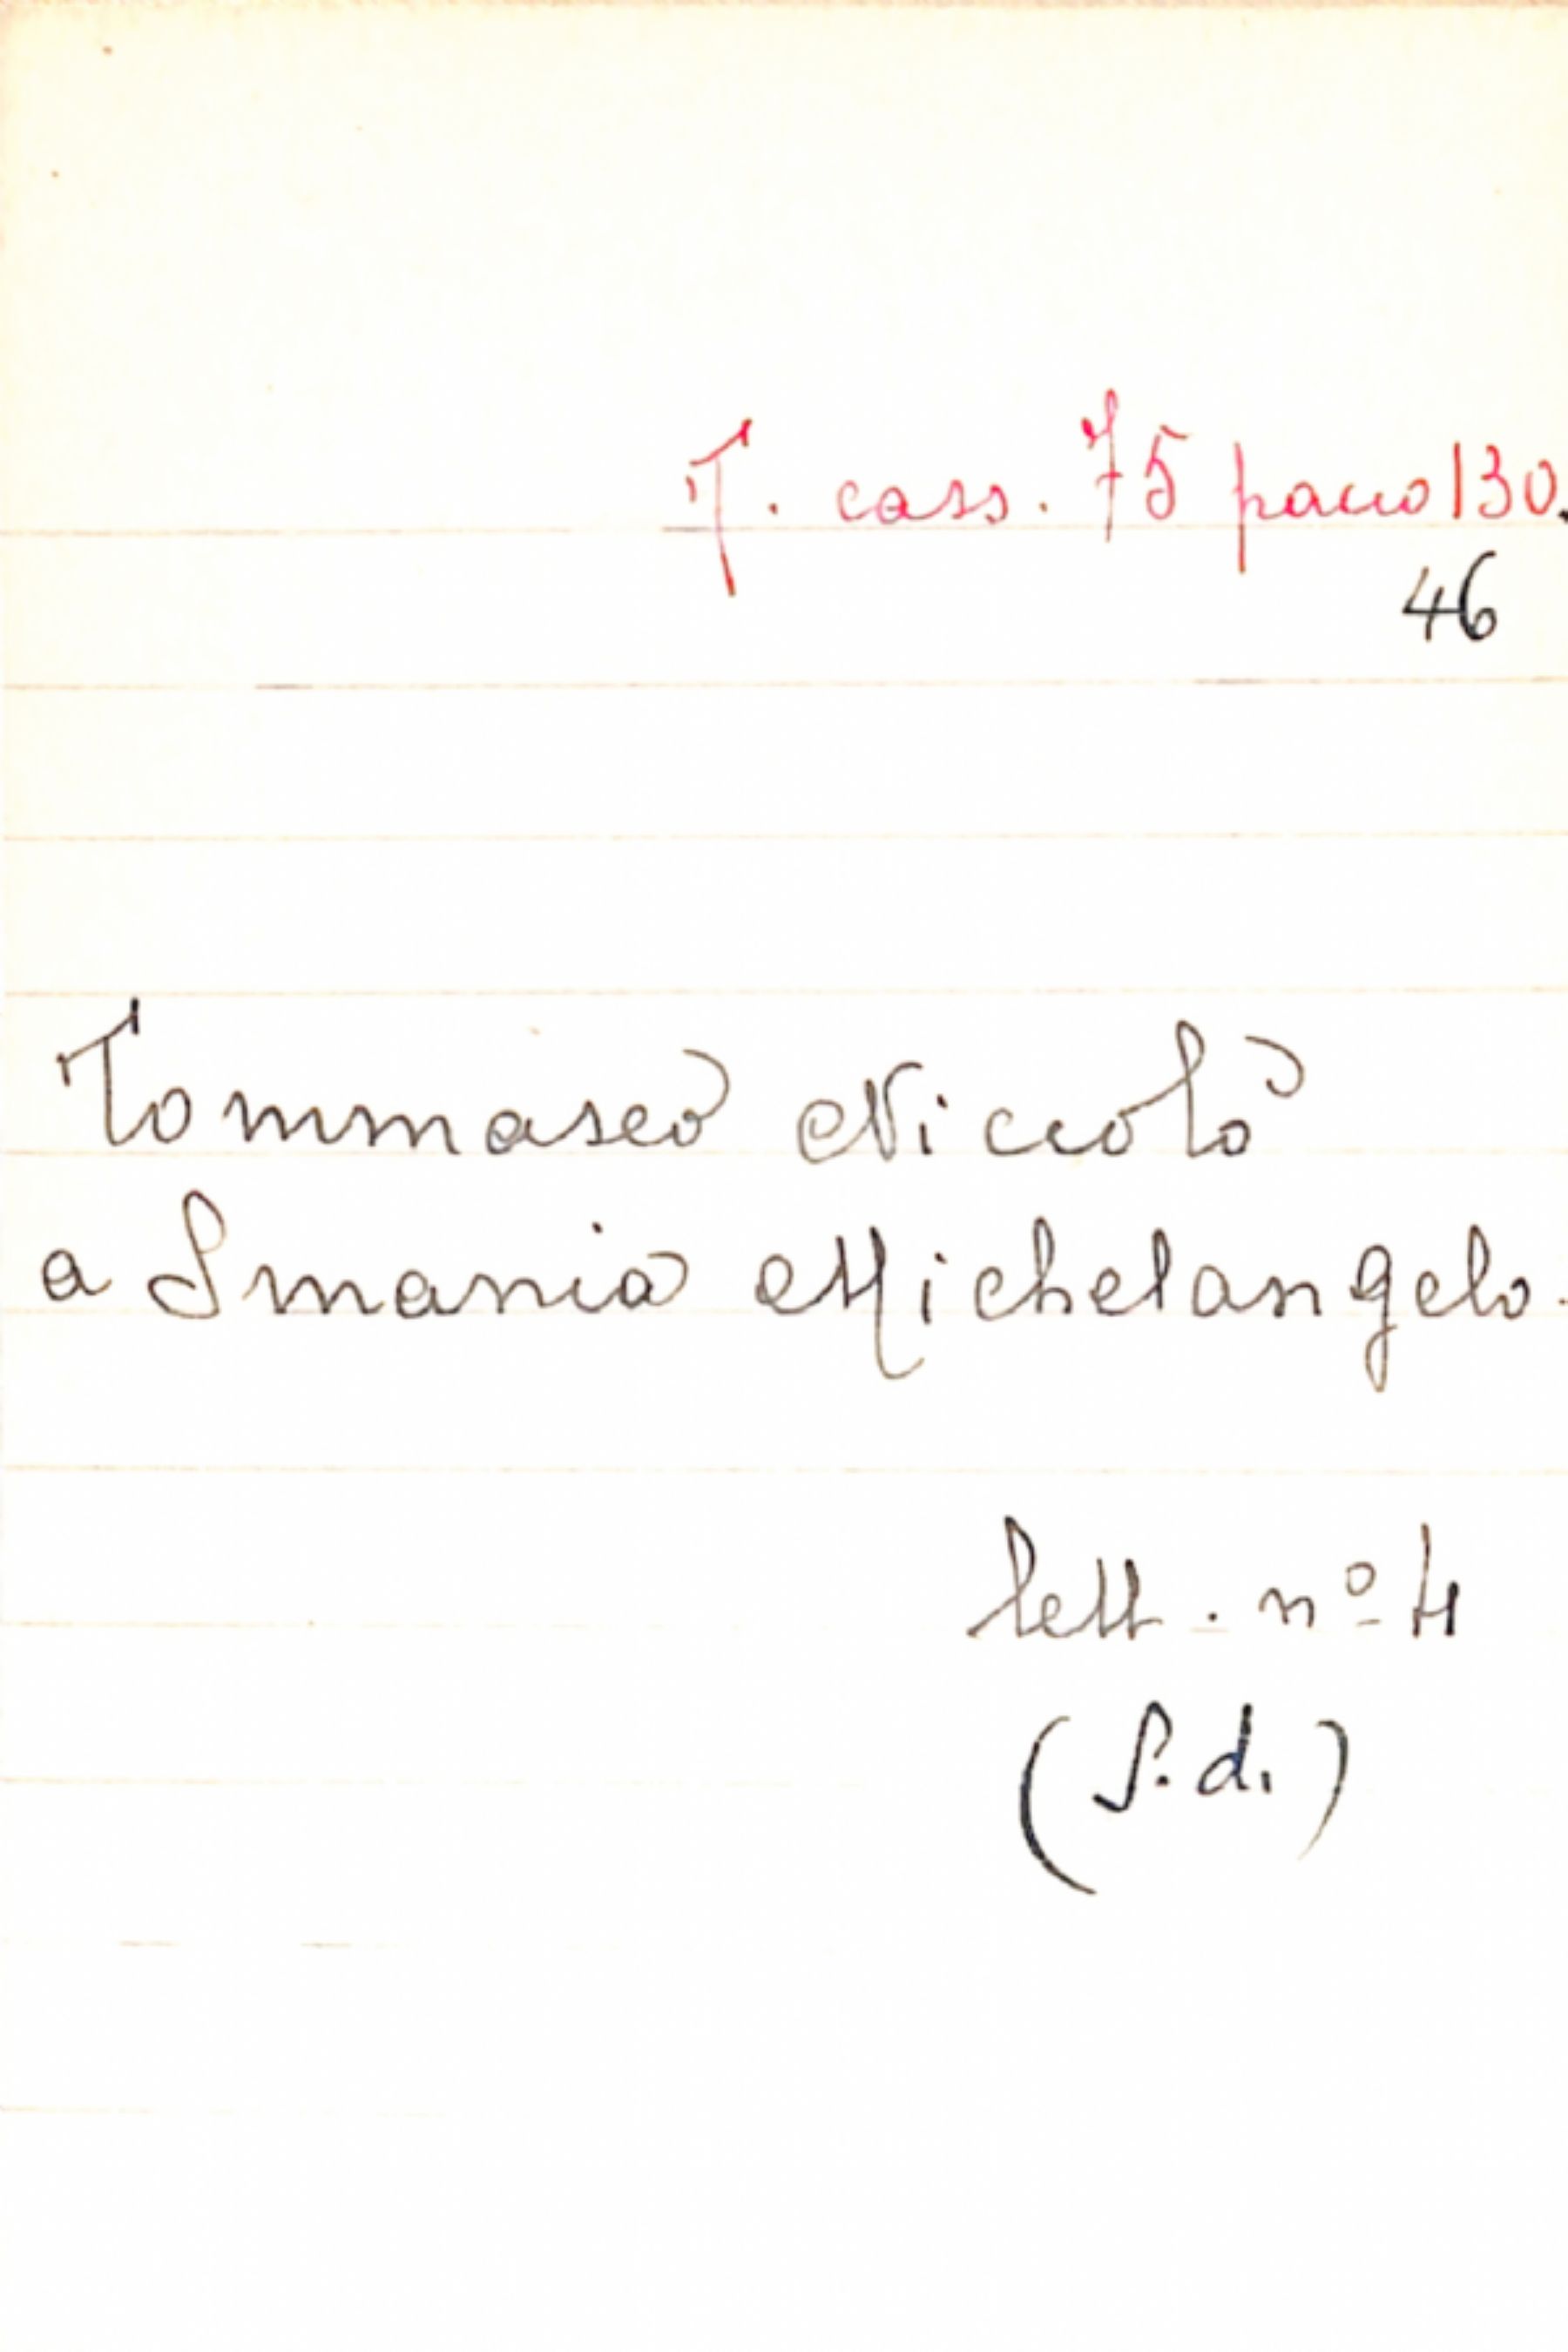 T. cass. 75 pacco 130.
46
Tommaseo Niccolò
a Smania Michelangelo.
lett. nº 4
(S. d.)